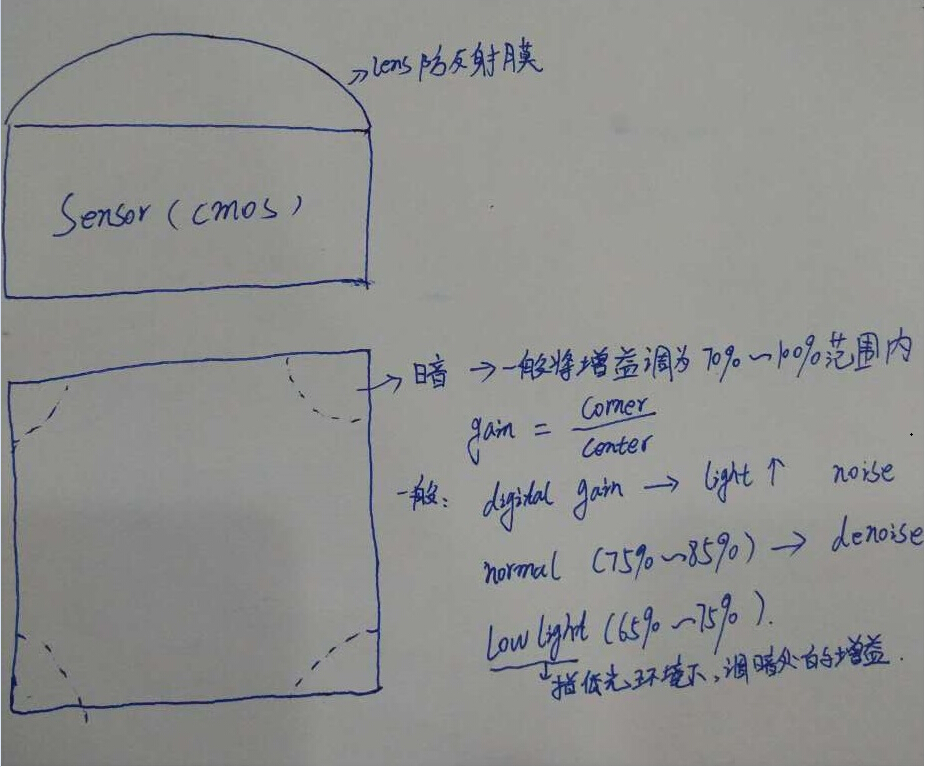 lens 防反射膜
Sensor (cmos)
暗 → 一般将增益调为 70% ~ 100% 范围内
gain = corner / center
一般: digital gain → light ↑ noise
normal (75% ~ 85%) → denoise
Low light (65% ~ 75%).
指低光环境下,调暗处的增益.